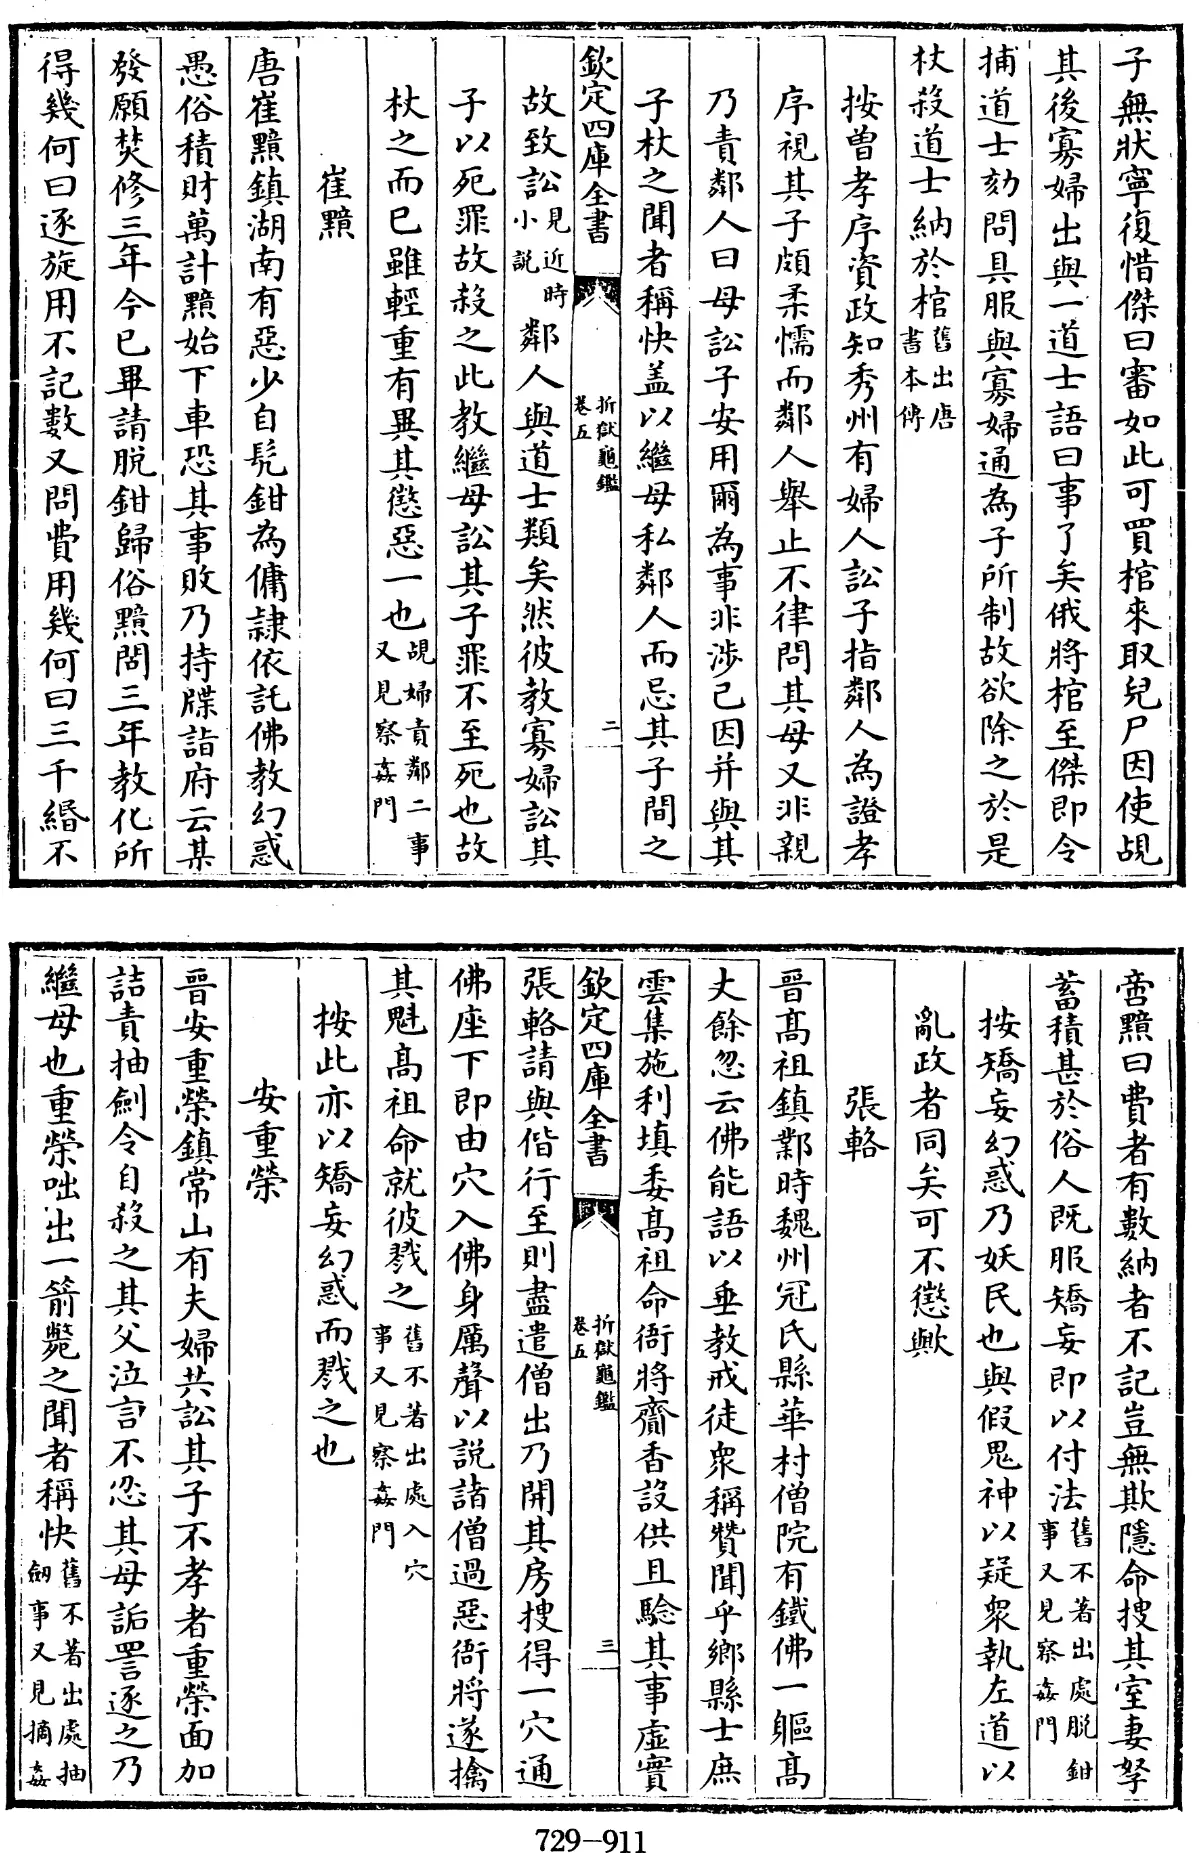 子無狀寧復惜傑曰審如此可買棺來取兒尸因使覘
其後寡婦出與一道士語曰事了矣俄將棺至傑即令
捕道士劾問具服與寡婦通為子所制故欲除之於是
杖殺道士納於棺舊出唐書本傳
按曽孝序資政知秀州有婦人訟子指鄰人為證孝
序視其子頗柔懦而鄰人舉止不律問其母又非親
乃責鄰人曰母訟子安用爾為事非涉己因并與其
子杖之聞者稱快盖以繼母私鄰人而忌其子間之
欽定四庫全書
折獄龜鑑
卷五
二
故致訟見近時小説鄰人與道士類矣然彼教寡婦訟其
子以死罪故殺之此教繼母訟其子罪不至死也故
杖之而已雖輕重有異其懲惡一也覘婦責鄰二事又見察姦門
崔黯
唐崔黯鎮湖南有惡少自髠鉗為傭隷依託佛教幻惑
愚俗積財萬計黯始下車恐其事敗乃持牒詣府云某
發願焚修三年今已畢請脱鉗歸俗黯問三年教化所
得幾何曰逐旋用不記數又問費用幾何曰三千緡不
啻黯曰費者有數納者不記豈無欺隱命搜其室妻孥
蓄積甚於俗人既服矯妄即以付法舊不著出處脱鉗事又見察姦門
按矯妄幻惑乃妖民也與假鬼神以疑衆執左道以
亂政者同矣可不懲歟
張輅
晉髙祖鎮鄴時魏州冠氏縣華村僧院有鐵佛一軀髙
丈餘忽云佛能語以垂教戒徒衆稱贊聞乎鄉縣士庶
雲集施利填委髙祖命衙將齎香設供且驗其事虛實
欽定四庫全書
折獄龜鑑
卷五
三
張輅請與偕行至則盡遣僧出乃開其房搜得一穴通
佛座下即由穴入佛身厲聲以説諸僧過惡衙將遂擒
其魁髙祖命就彼戮之舊不著出處入穴事又見察姦門
按此亦以矯妄幻惑而戮之也
安重榮
晉安重榮鎮常山有夫婦共訟其子不孝者重榮面加
詰責抽劍令自殺之其父泣言不忍其母詬詈逐之乃
繼母也重榮咄出一箭斃之聞者稱快舊不著出處抽劒事又見摘姦
729-911